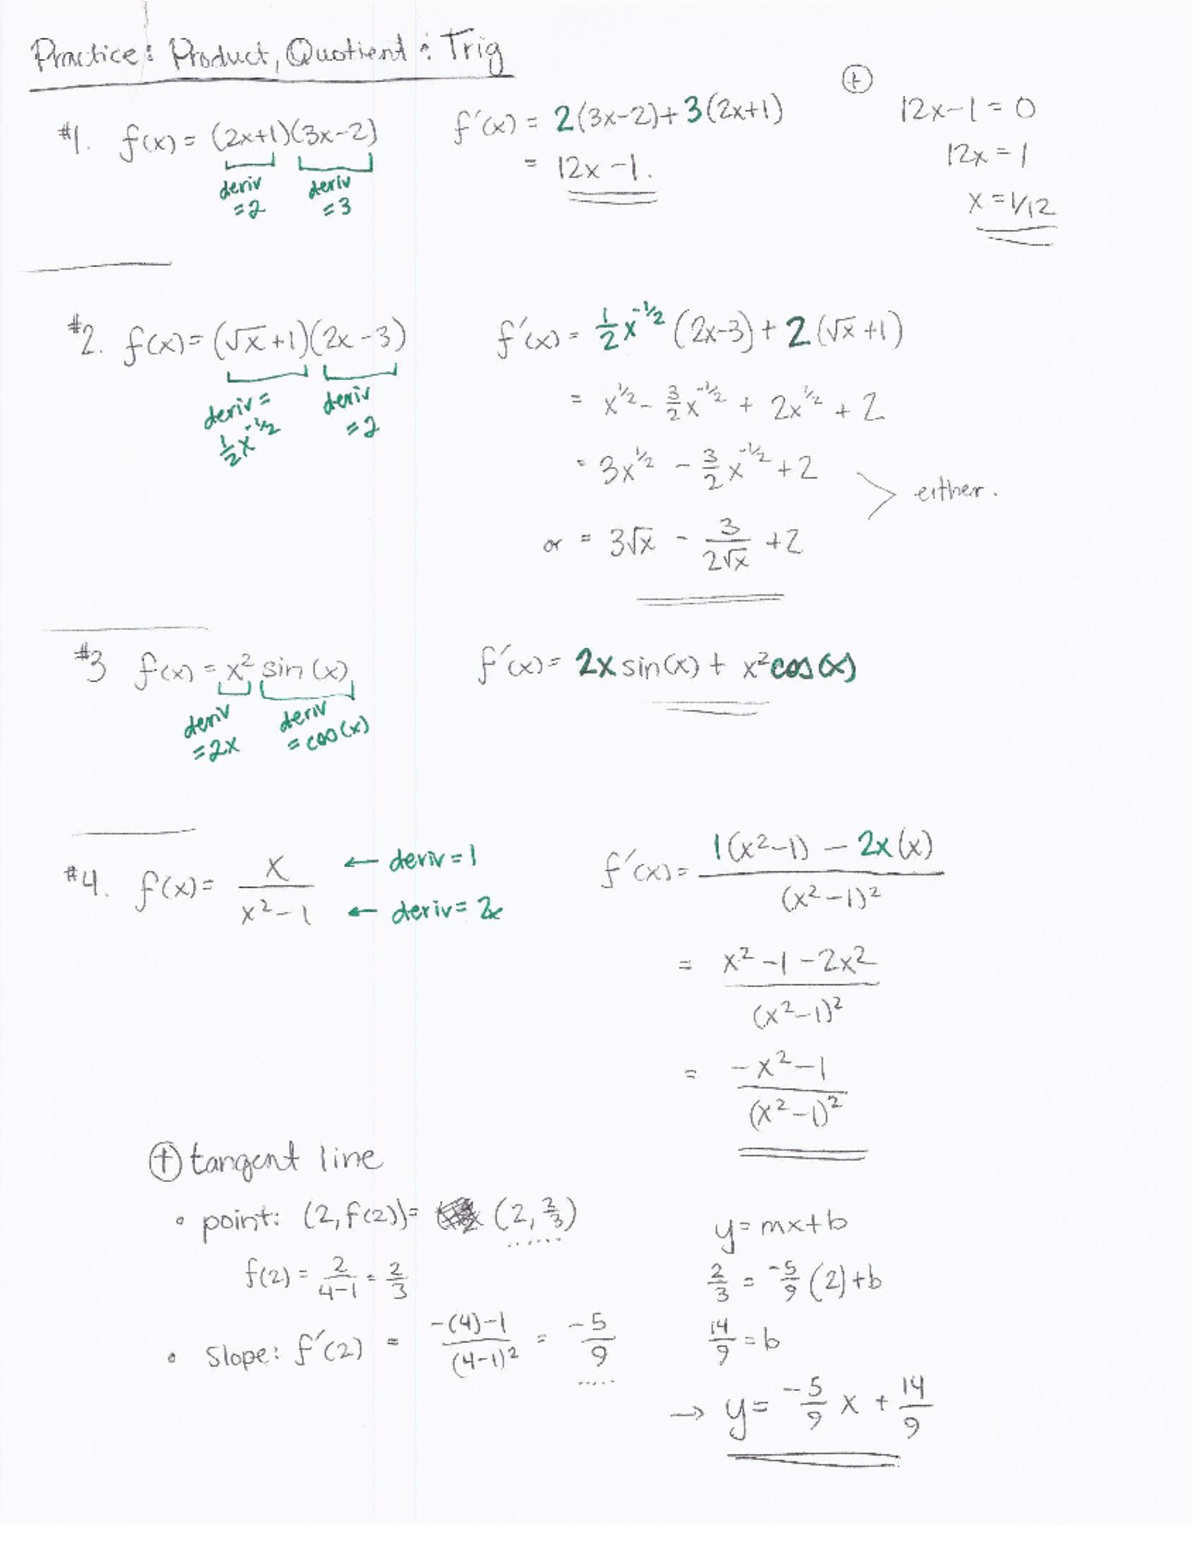 Practice: Product, Quotient : Trig
#1. f(x) = (2x+1)(3x-2)
deriv =2
deriv =3
f'(x) = 2(3x-2)+3(2x+1)
= 12x -1.
(+)
12x-1 = 0
12x = 1
x = 1/12
#2. f(x) = (√x +1)(2x -3)
deriv = ½x^-1/2
deriv =2
f'(x) = ½x^-1/2 (2x-3) + 2(√x +1)
= x^1/2 - 3/2 x^-1/2 + 2x^1/2 + 2
= 3x^1/2 - 3/2 x^-1/2 + 2
or = 3√x - 3/(2√x) + 2
either.
#3 f(x) = x² sin(x)
deriv =2x
deriv =cos(x)
f'(x) = 2x sin(x) + x² cos(x)
#4. f(x) = x/(x²-1)
← deriv = 1
← deriv = 2x
f'(x) = (1(x²-1) - 2x(x))/(x²-1)²
= (x²-1-2x²)/(x²-1)²
= (-x²-1)/(x²-1)²
(+) tangent line
• point: (2, f(2)) = (2, 2/3)
f(2) = 2/(4-1) = 2/3
• slope: f'(2) = (-(4)-1)/(4-1)² = -5/9
y = mx+b
2/3 = -5/9 (2)+b
14/9 = b
→ y = -5/9 x + 14/9